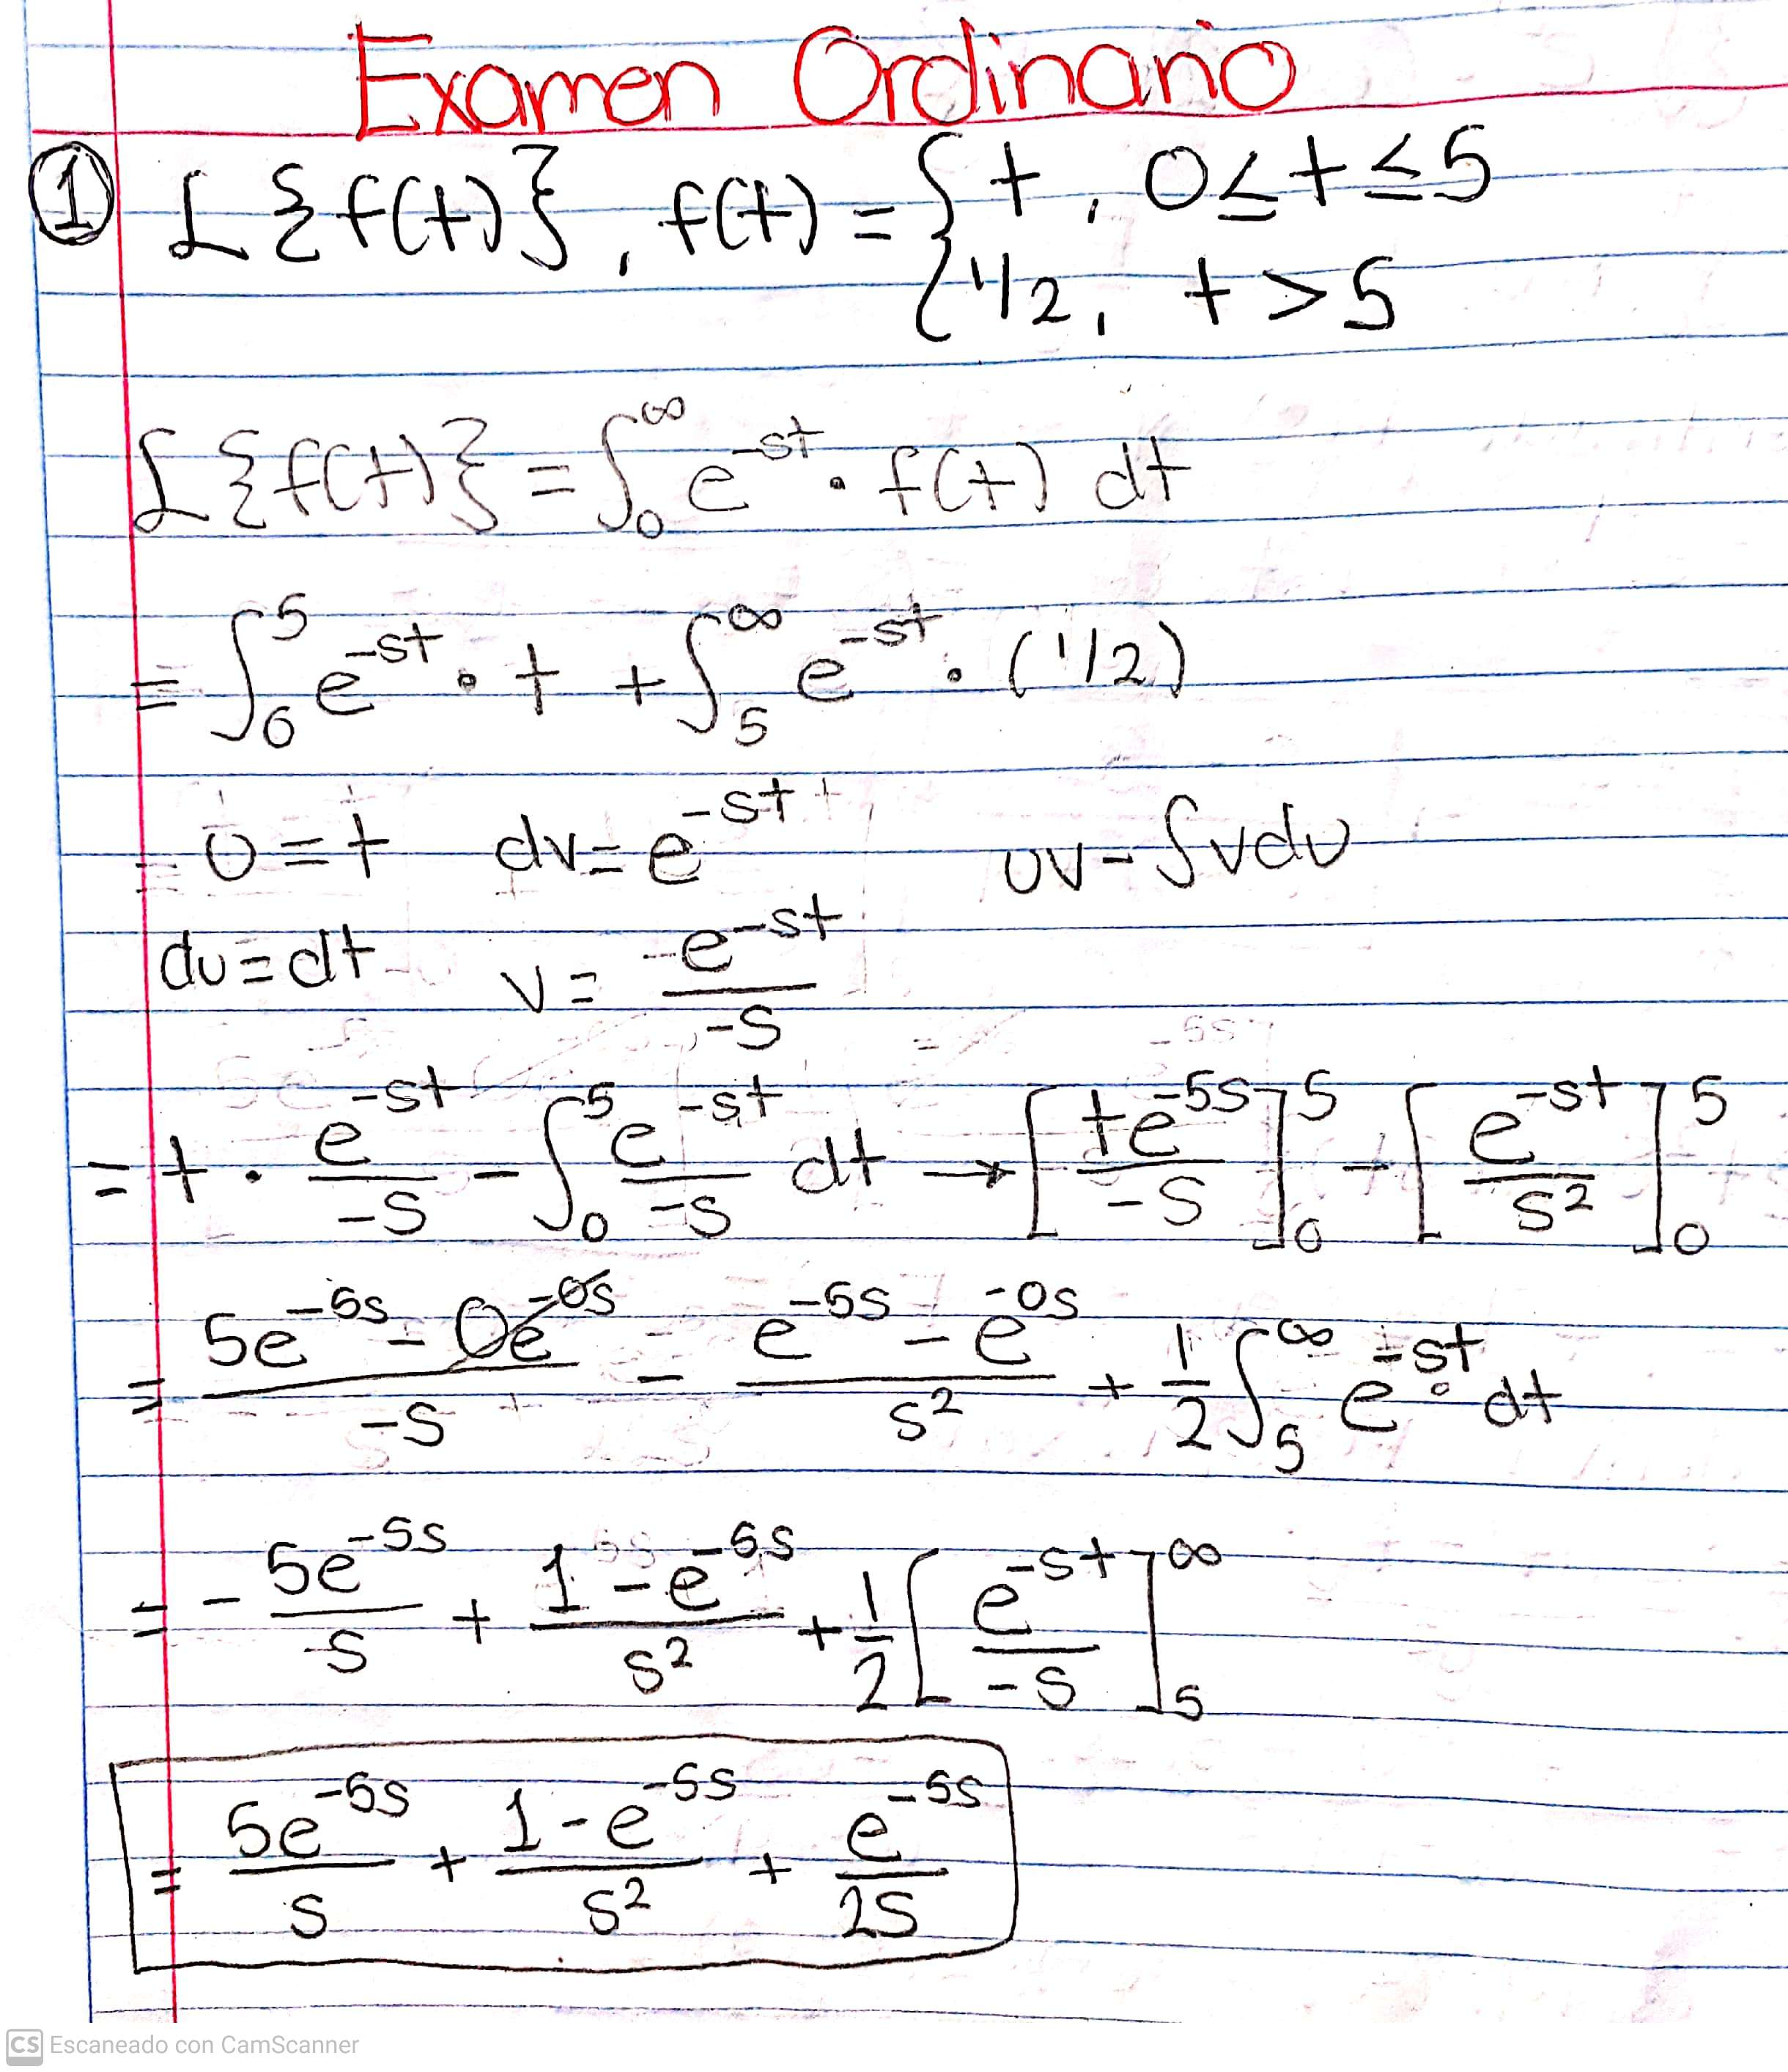 Examen Ordinario
① ℒ{f(t)}, f(t) = { t, 0≤t≤5
{ 1/2, t>5
ℒ{f(t)} = ∫₀^∞ e^-st · f(t) dt
= ∫₀^5 e^-st · t + ∫₅^∞ e^-st · (1/2)
u=t dv=e^-st uv-∫vdu
du=dt v= -e^-st/-s
= t · e^-st/-s - ∫₀^5 e^-st/-s dt → [te^-5s/-s]₀^5 - [e^-st/s²]₀^5
= (5e^-5s - 0e^-0s)/-s - (e^-5s - e^-0s)/s² + 1/2 ∫₅^∞ e^-st · dt
= - 5e^-5s/-s + (1-e^-5s)/s² + 1/2 [e^-st/-s]₅^∞
= 5e^-5s/s + (1-e^-5s)/s² + e^-5s/2s
CS Escaneado con CamScanner